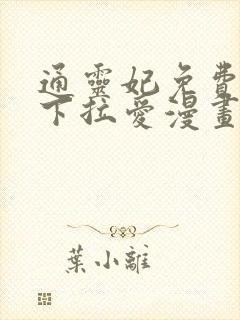 通靈妃免費
下拉愛漫畫
葉小離